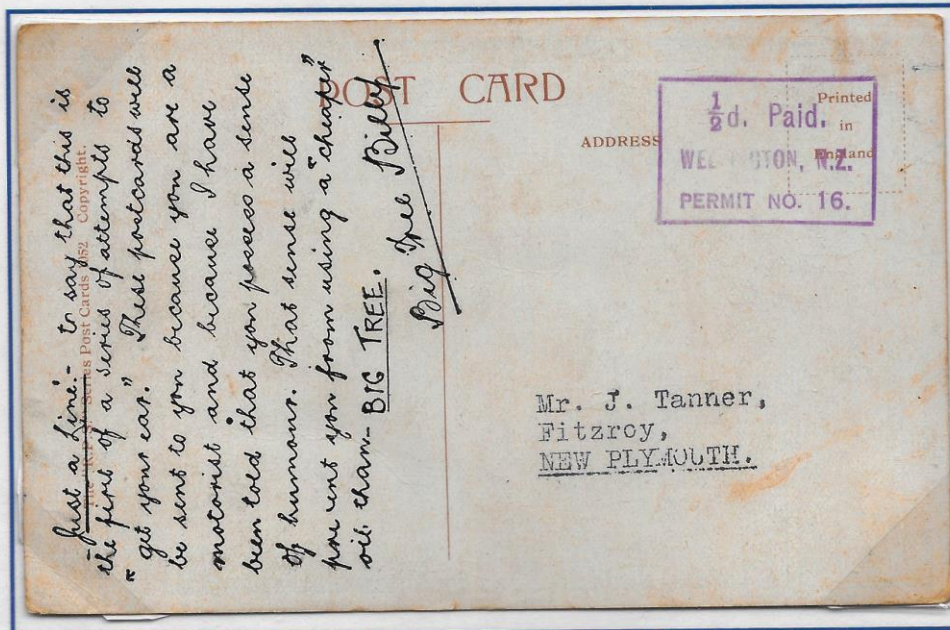 POST CARD
ADDRESS
Printed
in
England
½d. Paid.
WELLINGTON, N.Z.
PERMIT NO. 16.
Mr. J. Tanner,
Fitzroy,
NEW PLYMOUTH.
Series Post Cards 1052 Copyright.
- Just a Line:- to say that this is
the first of a series of attempts to
"get your ear." These postcards will
be sent to you because you are a
motorist and because I have
been told that you possess a sense
of humour. That sense will
prevent you from using a "cheaper"
oil than- BIG TREE.
Big Tree Billy